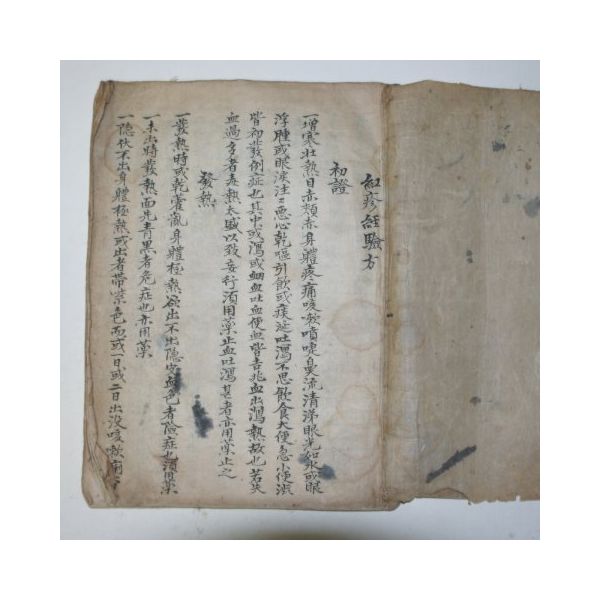 紅疹経驗方
初證
一增寒壯熱目赤頰赤身體疼痛咳嗽噴嚏鼻流清涕眼光如水或眼
浮腫或眼淚注〻惡心乾嘔引飮或痰涎吐瀉不思飮食大便急小便澁
皆初發例症也其中或瀉或衂血吐血便血皆吉兆血出瀉熱故也若失
血過多者毒熱太盛以致妄行須用藥止血吐瀉甚者亦用藥止之
發熱
一發熱時或乾霍亂身體極熱欲出不出隱 血色者險症也須用藥
一未出時發熱面先靑黑者危症也亦用藥
一隱伏不出身體極熱或出者帶紫色而或一日或二日出沒咳嗽